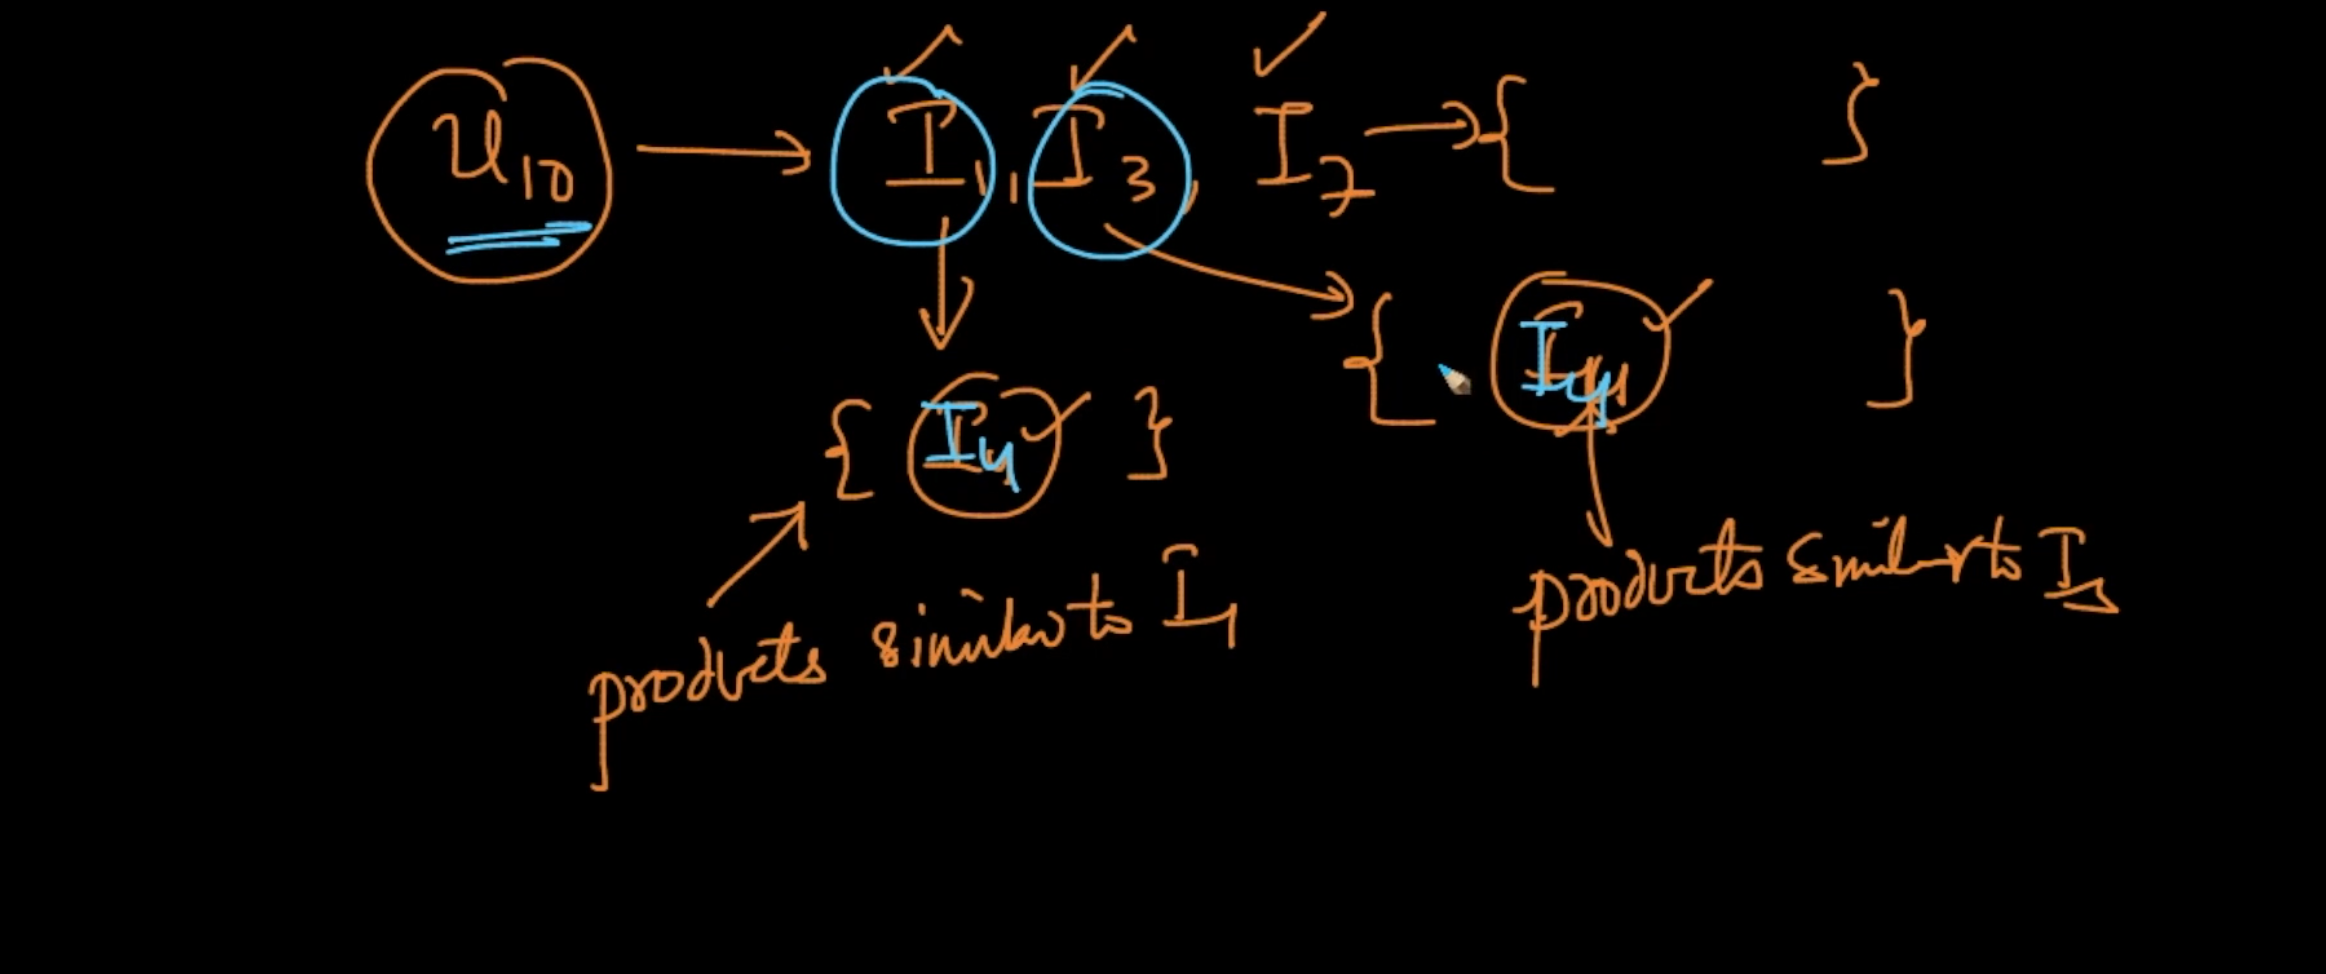 U10 → I1, I3, I7 → { }
{ I4 } { I4 }
products similar to I1
products similar to I3